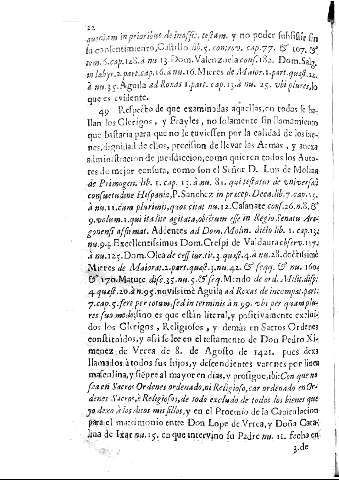 22
queritam in prioribus de inoffic. testam. y no poder subsistir sin
su consentimiento, Castillo lib. 5. controv. cap. 77. & 107. &
tom. 6. cap. 128. à nu 13. Dom. Valenzuela cons. 182. Dom. Salg.
in labyr. 2. part. cap. 16. à nu. 16. Mieres de Maior. 1. part. quæst. 12.
à nu. 35. Aguila ad Roxas 1. part. cap. 13. à nu. 25. vbi plures, lo
que es evidente.
49 Respecto de que examinadas aquellas, en todas se ha-
llan los Clerigos, y Frayles, no solamente sin llamamiento
que bastaria para que no le tuviessen por la calidad de los bie-
nes, dignidad de ellos, precision de llevar las Armas, y anexa
administracion de jurisdiccion, como quieren todos los Auto-
res de mejor censura, como son el Señor D. Luis de Molina
de Primogen. lib. 1. cap. 13. à nu. 81. qui testatur de vniversali
consuetudine Hispaniæ, P. Sanchez in præcep. Deca. lib. 7. cap. 15.
à nu. 11. cum plurimis, quos citat nu. 12. Casanate cons. 26. n. 8. &
9. volum. 1. qui ita lite agitata, obtinuisse in Regio Senatu Ara-
gonensi affirmat. Addentes ad Dom. Molin. dicto lib. 1. cap. 13.
nu. 94. Excellentissimus Dom. Crespi de Valdaura observ. 117.
à nu. 125. Dom. Olea de cess. iur. tit. 3. quæst. 4. à nu. 28. dexissimè
Mieres de Maiorat. 2. part. quæst. 3. nu. 42. & seqq. & nu. 160.
& 170. Matute dise. 35. nu. 5. & seq. Mendo de ord. Milit. disp.
4. quæst. 20. à n. 95. novissimè Aguila ad Roxas de incompat. part.
7. cap. 5. fere per totum, sed in terminis à n. 99. vbi per quamplu-
res suo modo, sino es que están literal, y positivamente exclui-
dos los Clerigos, Religiosos, y demàs en Sacros Ordenes
constituídos, y assi se lee en el testamento de Don Pedro Xi-
menez de Vrrea de 8. de Agosto de 1421. pues dexa
llamados à todos sus hijos, y descendientes varones por linea
masculina, y siẽpre al mayor en dias, y prosigue, ibi: Con que no
sea en Sacros Ordenes ordenado, ni Religioso, car ordenado en Or-
denes Sacros, è Religioso, de todo excluido de todos los bienes que
yo dexo à los ditos mis fillos, y en el Proemio de la Capitulacion
para el matrimonio entre Don Lope de Vrrea, y Doña Cata-
lina de Ixar nu. 15. en que intervino su Padre nu. 11. fecha en
3. de